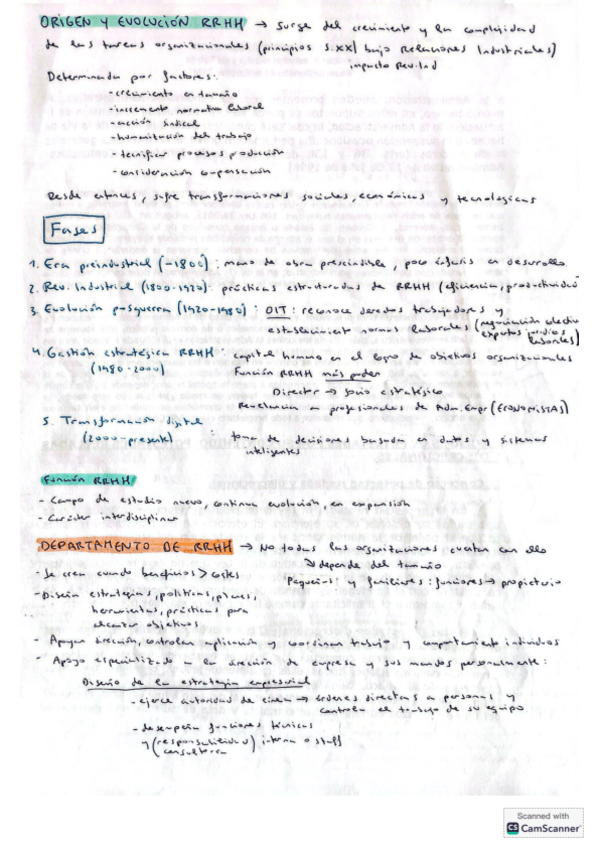 ORIGEN Y EVOLUCIÓN RRHH → Surge del crecimiento y la complejidad
de las tareas organizacionales (principios S.XX/ bajo Relaciones Industriales)
impacto Rev.Ind
Determinada por factores:
- crecimiento en tamaño
- incremento normativa laboral
- acción sindical
- humanización del trabajo
- tecnificar procesos producción
- consideración compensación
Desde entonces, sufre transformaciones sociales, económicas y tecnológicas
Fases
1. Era preindustrial (-1800): mano de obra prescindible, poco énfasis en desarrollo
2. Rev. Industrial (1800-1920): prácticas estructuradas de RRHH (eficiencia, productividad
3. Evolución posguerra (1920-1980): OIT: reconoce derechos trabajadores y
establecimiento normas laborales (negociación colectiva
expertos jurídicos laborales)
4. Gestión estratégica RRHH: capital humano en el logro de objetivos organizacionales
(1980-2000) Función RRHH más poder
Director → socio estratégico
Relevancia a profesionales de Adm. Empr (ECONOMISTAS)
5. Transformación digital
(2000-presente): toma de decisiones basada en datos y sistemas
inteligentes
Función RRHH
- Campo de estudio nuevo, continua evolución, en expansión
- Carácter interdisciplinar
DEPARTAMENTO DE RRHH → No todas las organizaciones cuentan con ello
↘ depende del tamaño
- Se crea cuando beneficios > costes
Pequeñas y familiares: funciones → propietario
- Diseña estrategias, políticas, planes,
herramientas, prácticas para
alcanzar objetivos
- Apoyan dirección, controlan aplicación y coordinan trabajo y comportamiento individuos
- Apoyo especializado a la dirección de empresa y sus mandos personalmente:
Diseño de la estrategia empresarial
- ejerce autoridad de línea → órdenes directas a personas y
controla el trabajo de su equipo
- desempeña funciones técnicas
y (responsabilidad) interna o staff
consultora
Scanned with
CS CamScanner